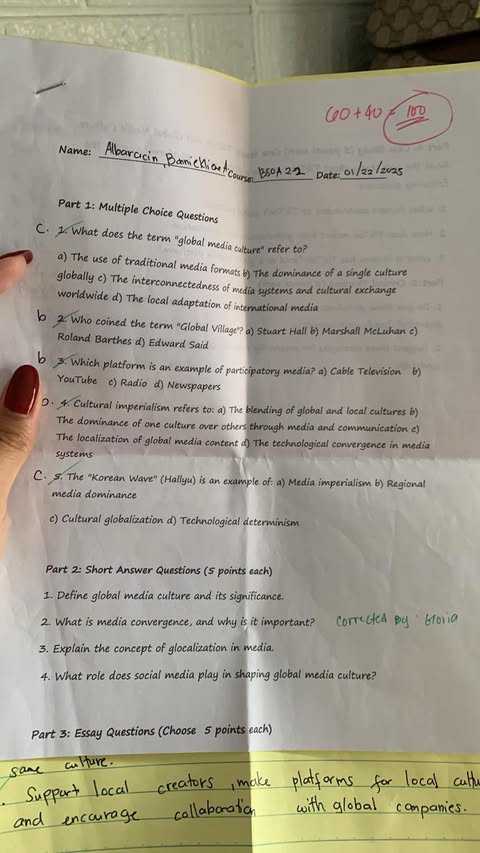 60 + 40 = 100
Name: Albaracin, Course: BSOA 2-2 Date: 01/22/2025
Part 1: Multiple Choice Questions
C. 1. What does the term "global media culture" refer to?
a) The use of traditional media formats b) The dominance of a single culture
globally c) The interconnectedness of media systems and cultural exchange
worldwide d) The local adaptation of international media
b 2. Who coined the term "Global Village"? a) Stuart Hall b) Marshall McLuhan c)
Roland Barthes d) Edward Said
b 3. Which platform is an example of participatory media? a) Cable Television b)
YouTube c) Radio d) Newspapers
D. 4. Cultural imperialism refers to: a) The blending of global and local cultures b)
The dominance of one culture over others through media and communication c)
The localization of global media content d) The technological convergence in media
systems
C. 5. The "Korean Wave" (Hallyu) is an example of: a) Media imperialism b) Regional
media dominance
c) Cultural globalization d) Technological determinism
Part 2: Short Answer Questions (5 points each)
1. Define global media culture and its significance.
2. What is media convergence, and why is it important? Corrected by:
3. Explain the concept of glocalization in media.
4. What role does social media play in shaping global media culture?
Part 3: Essay Questions (Choose 5 points each)
same culture.
. Support local creators, make platforms for local cultu
and encourage collaboration with global companies.